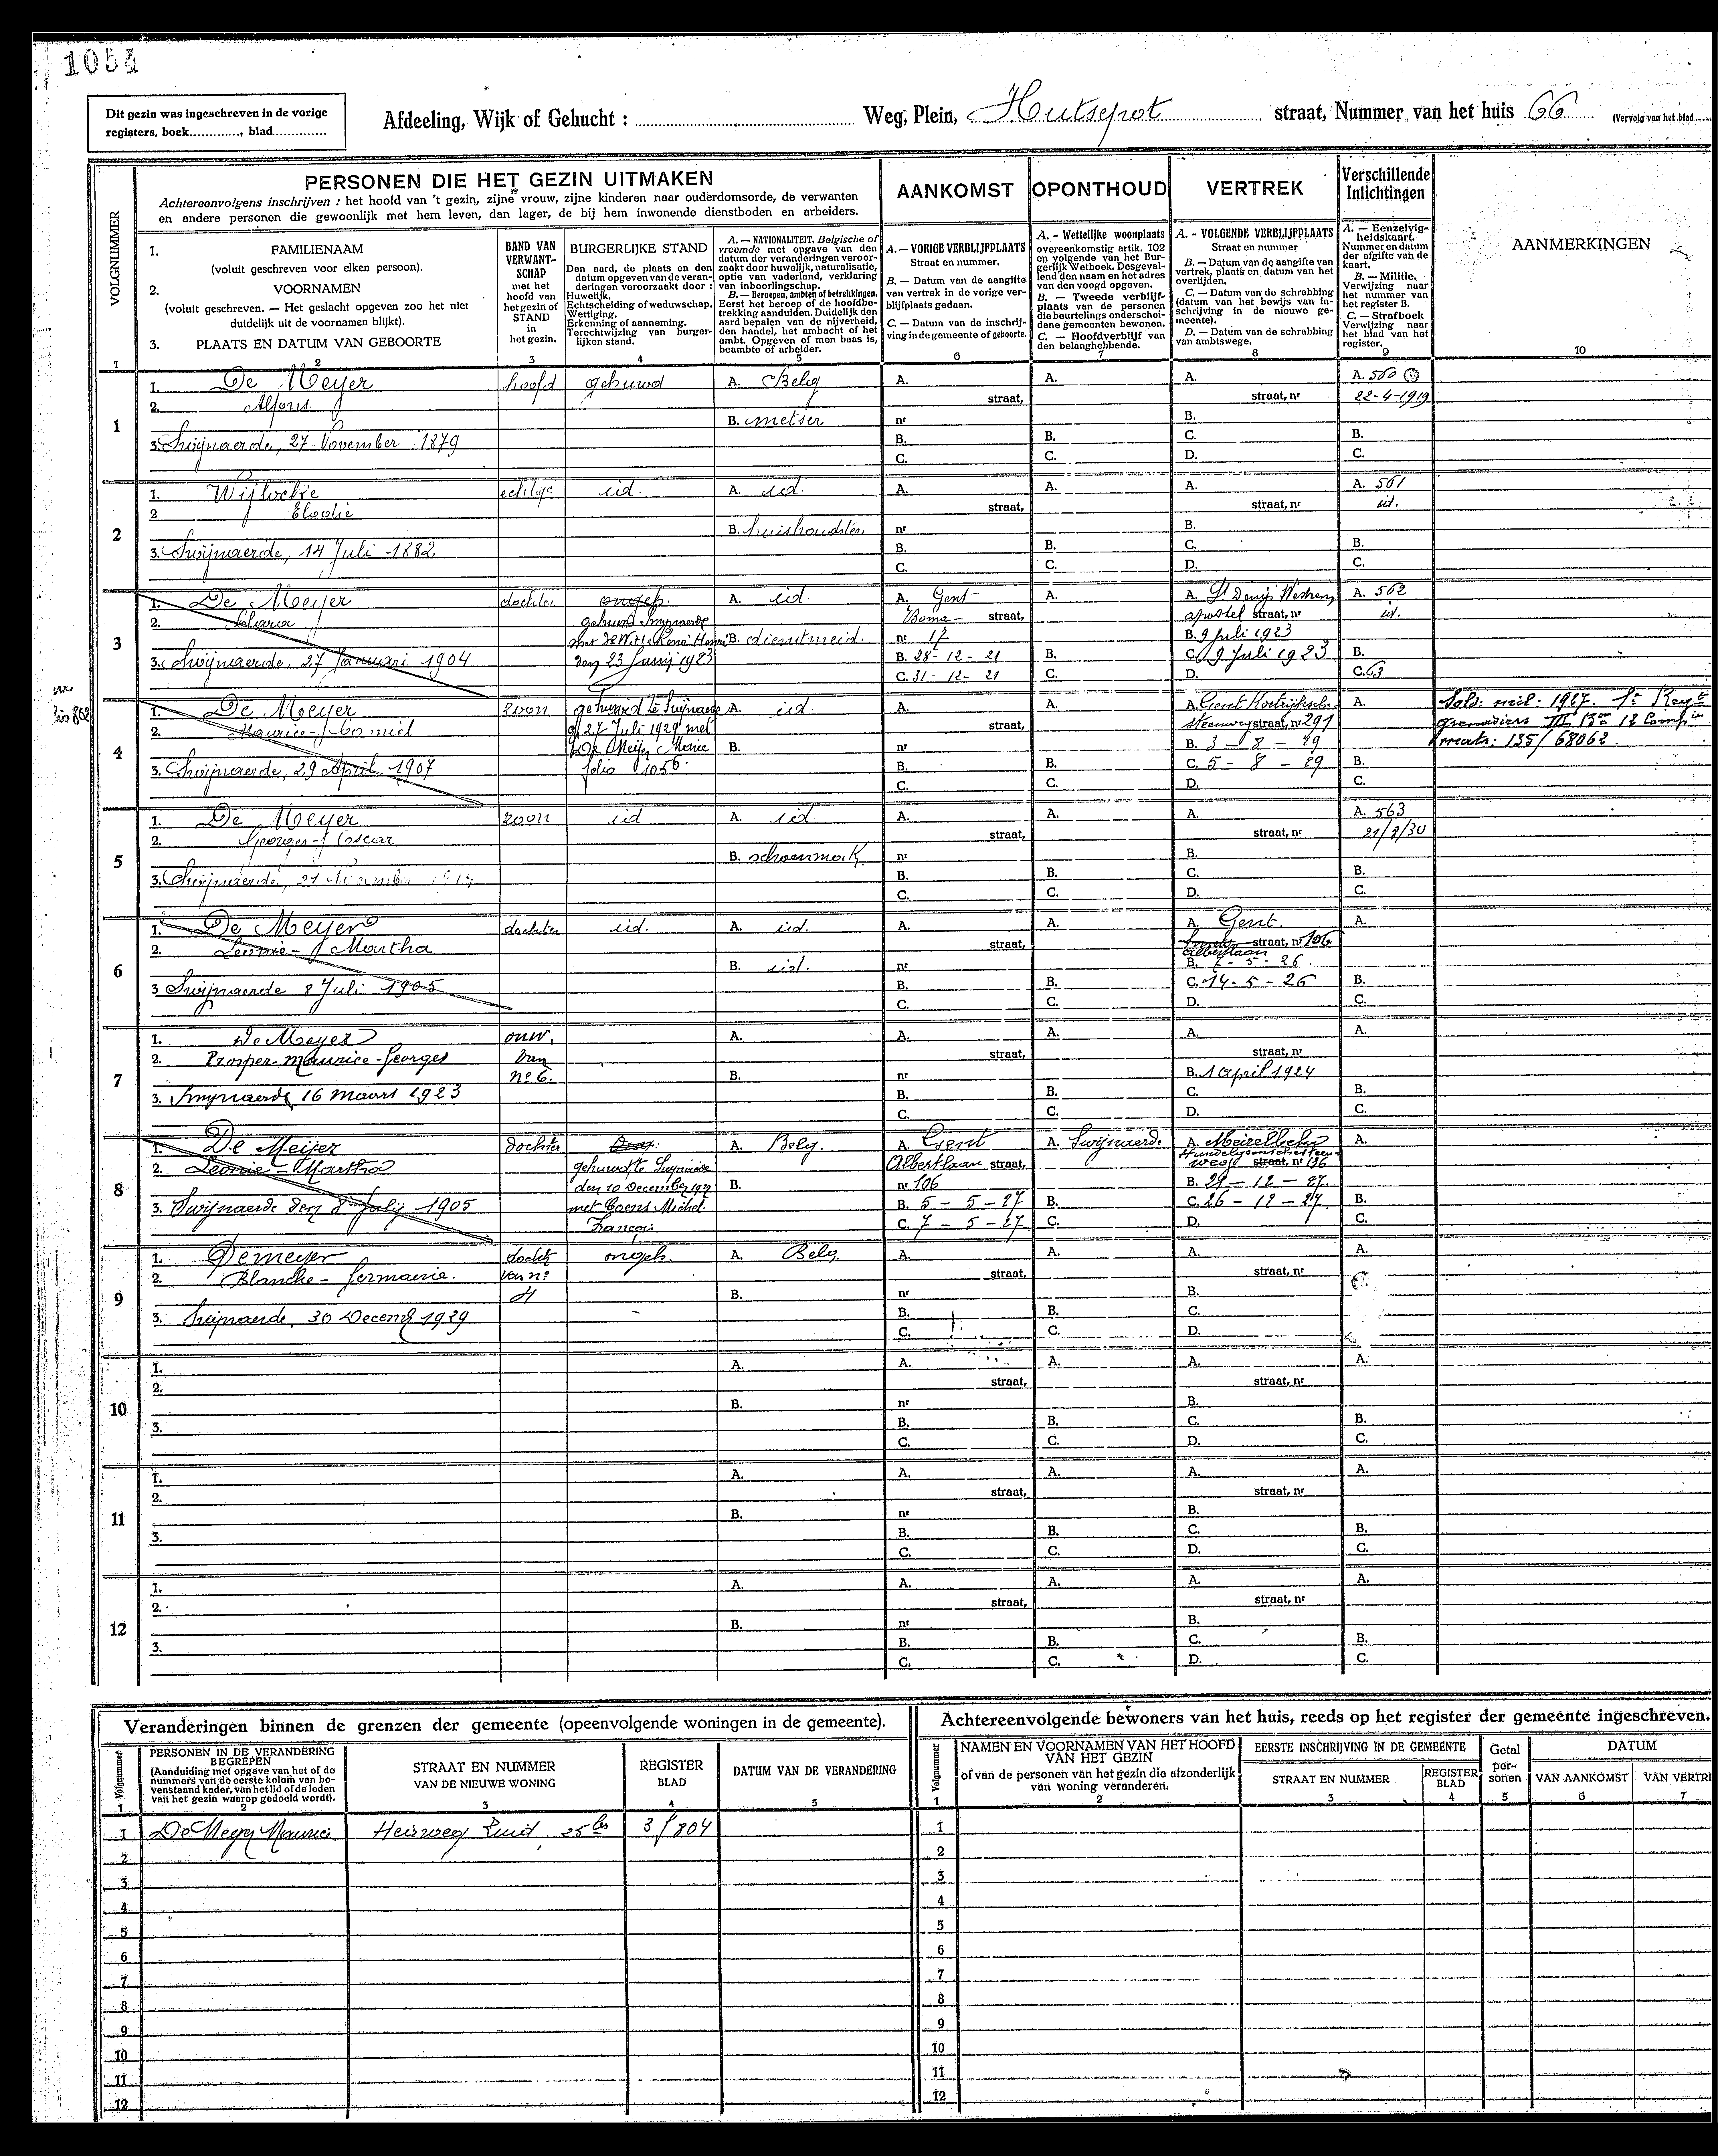 1054
Dit gezin was ingeschreven in de vorige
registers, boek............, blad.............
Afdeeling, Wijk of Gehucht : Weg, Plein, Hutsepot straat, Nummer van het huis 66 (Vervolg van het blad
VOLGNUMMER
PERSONEN DIE HET GEZIN UITMAKEN
Achtereenvolgens inschrijven : het hoofd van 't gezin, zijne vrouw, zijne kinderen naar ouderdomsorde, de verwanten
en andere personen die gewoonlijk met hem leven, dan lager, de bij hem inwonende dienstboden en arbeiders.
1. FAMILIENAAM
(voluit geschreven voor elken persoon).
2. VOORNAMEN
(voluit geschreven. — Het geslacht opgeven zoo het niet
duidelijk uit de voornamen blijkt).
3. PLAATS EN DATUM VAN GEBOORTE
BAND VAN
VERWANT-
SCHAP
met het
hoofd van
het gezin of
STAND
in
het gezin.
BURGERLIJKE STAND
Den aard, de plaats en den
datum opgeven van de veran-
deringen veroorzaakt door :
Huwelijk.
Echtscheiding of weduwschap.
Wettiging.
Erkenning of aanneming.
Terechtwijzing van burger-
lijken stand.
A. — NATIONALITEIT. Belgische of
vreemde met opgave van den
datum der veranderingen veroor-
zaakt door huwelijk, naturalisatie,
optie van vaderland, verklaring
van inboorlingschap.
B. — Beroepen, ambten of betrekkingen.
Eerst het beroep of de hoofdbe-
trekking aanduiden. Duidelijk den
aard bepalen van de nijverheid,
den handel, het ambacht of het
ambt. Opgeven of men baas is,
beambte of arbeider.
AANKOMST
A. — VORIGE VERBLIJFPLAATS
Straat en nummer.
B. — Datum van de aangifte
van vertrek in de vorige ver-
blijfplaats gedaan.
C. — Datum van de inschrij-
ving in de gemeente of geboorte.
OPONTHOUD
A. - Wettelijke woonplaats
overeenkomstig artik. 102
en volgende van het Bur-
gerlijk Wetboek. Desgeval-
lend den naam en het adres
van den voogd opgeven.
B. — Tweede verblijf-
plaats van de personen
die beurtelings onderschei-
dene gemeenten bewonen.
C. — Hoofdverblijf van
den belanghebbende.
VERTREK
A. - VOLGENDE VERBLIJFPLAATS
Straat en nummer
B. — Datum van de aangifte van
vertrek, plaats en datum van het
overlijden.
C. — Datum van de schrabbing
(datum van het bewijs van in-
schrijving in de nieuwe ge-
meente).
D. — Datum van de schrabbing
van ambtswege.
Verschillende
Inlichtingen
A. — Eenzelvig-
heidskaart.
Nummer en datum
der afgifte van de
kaart.
B. — Militie.
Verwijzing naar
het nummer van
het register B.
C. — Strafboek
Verwijzing naar
het blad van het
register.
AANMERKINGEN
1 2 3 4 5 6 7 8 9 10
1
1. De Meyer hoofd gehuwd A. Belg A. A. A. A. 560
2. Alfons straat, straat, nr 22-4-1919
B. metser nr B.
3. Swijnaerde, 27 November 1879 B. B. C. B.
C. C. D. C.
2
1. Wijlocke echtge id. A. id. A. A. A. A. 561
2 Elodie straat, straat, nr id.
B. huishoudster nr B.
3. Swijnaerde, 14 Juli 1882 B. B. C. B.
C. C. D. C.
3
1. De Meyer dochter ongeh. A. id. A. Gent A. A. St Denijs Westrem A. 562
2. Maria gehuwd Swynaerde straat, apostel straat, nr id.
met De Witte René Henri B. dienstmeid. nr 17 B. 9 Juli 1923
3. Swijnaerde, 27 Januari 1904 den 23 Junij 1923 B. 28-12-21 B. C. 9 Juli 1923 B.
C. 31-12-21 C. D. C. 63
4
1. De Meyer zoon gehuwd te Swijnaerde A. id. A. A. A. Gent Kortrijksch. A. Sold. mil. 1927. 1e Regt
2. Maurice-Camiel op 27 Juli 1929 met straat, steenweg straat, nr 291 grenadiers III Bon 12 Compie
De Meijer Maria B. nr B. 3-8-29 matr: 135/68062.
3. Swijnaerde, 29 April 1907 folio 1056. B. B. C. 5-8-29 B.
C. C. D. C.
5
1. De Meyer zoon id A. id A. A. A. A. 563
2. Georges-Oscar straat, straat, nr 21/7/30
B. schoenmak. nr B.
3. Swijnaerde, 21 B. B. C. B.
C. C. D. C.
6
1. De Meyer dochter id. A. id. A. A. A. Gent A.
2. Leonie-Martha straat, straat, nr 106
Albertlaan
B. id. nr B. 7-5-26.
3 Swijnaerde 8 Juli 1905 B. B. C. 14-5-26 B.
C. C. D. C.
7
1. De Meyer onw. A. A. A. A. A.
2. Prosper-Maurice-Georges van straat, straat, nr
no 6. B. nr B. 1 April 1924
3. Swynaerde 16 Maart 1923 B. B. C. B.
C. C. D. C.
8
1. De Meijer dochter A. Belg. A. Gent A. Swijnaerde A. Meirelbeke A.
2. Leonie-Martha gehuwd te Swijnaerde Albertlaan straat, Hundelgemschesteen
weg straat, nr 136
den 10 December 1927 B. nr 106 B. 29-12-27.
3. Swijnaerde den 8 July 1905 met Coens Michel. B. 5-5-27 B. C. 26-12-27. B.
François C. 7-5-27 C. D. C.
9
1. Demeyer docht ongeh. A. Belg. A. A. A. A.
2. Blanche-Germaine. van no straat, straat, nr
4 B. nr B.
3. Swijnaerde, 30 Decemb 1929 B. B. C.
C. C. D.
10
1. A. A. A. A. A.
2. straat, straat, nr
B. nr B.
3. B. B. C. B.
C. C. D. C.
11
1. A. A. A. A. A.
2. straat, straat, nr
B. nr B.
3. B. B. C. B.
C. C. D. C.
12
1. A. A. A. A. A.
2. straat, straat, nr
B. nr B.
3. B. B. C. B.
C. C. D. C.
Veranderingen binnen de grenzen der gemeente (opeenvolgende woningen in de gemeente).
Volgnummer
PERSONEN IN DE VERANDERING
BEGREPEN
(Aanduiding met opgave van het of de
nummers van de eerste kolom van bo-
venstaand kader, van het lid of de leden
van het gezin waarop gedoeld wordt).
STRAAT EN NUMMER
VAN DE NIEUWE WONING
REGISTER
BLAD
DATUM VAN DE VERANDERING
1 2 3 4 5
1 De Meyer Maurice Heirweg Zuid 25 bis 3/804
2
3
4
5
6
7
8
9
10
11
12
Achtereenvolgende bewoners van het huis, reeds op het register der gemeente ingeschreven.
Volgnummer
NAMEN EN VOORNAMEN VAN HET HOOFD
VAN HET GEZIN
of van de personen van het gezin die afzonderlijk
van woning veranderen.
EERSTE INSCHRIJVING IN DE GEMEENTE
STRAAT EN NUMMER
REGISTER
BLAD
Getal
per-
sonen
DATUM
VAN AANKOMST VAN VERTRE
1 2 3 4 5 6 7
1
2
3
4
5
6
7
8
9
10
11
12